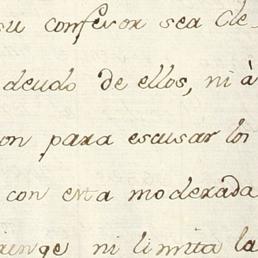 su confesor sea Cle-
deudo de ellos, ni à
on para escusar los
con esta moderada
renge ni limita la